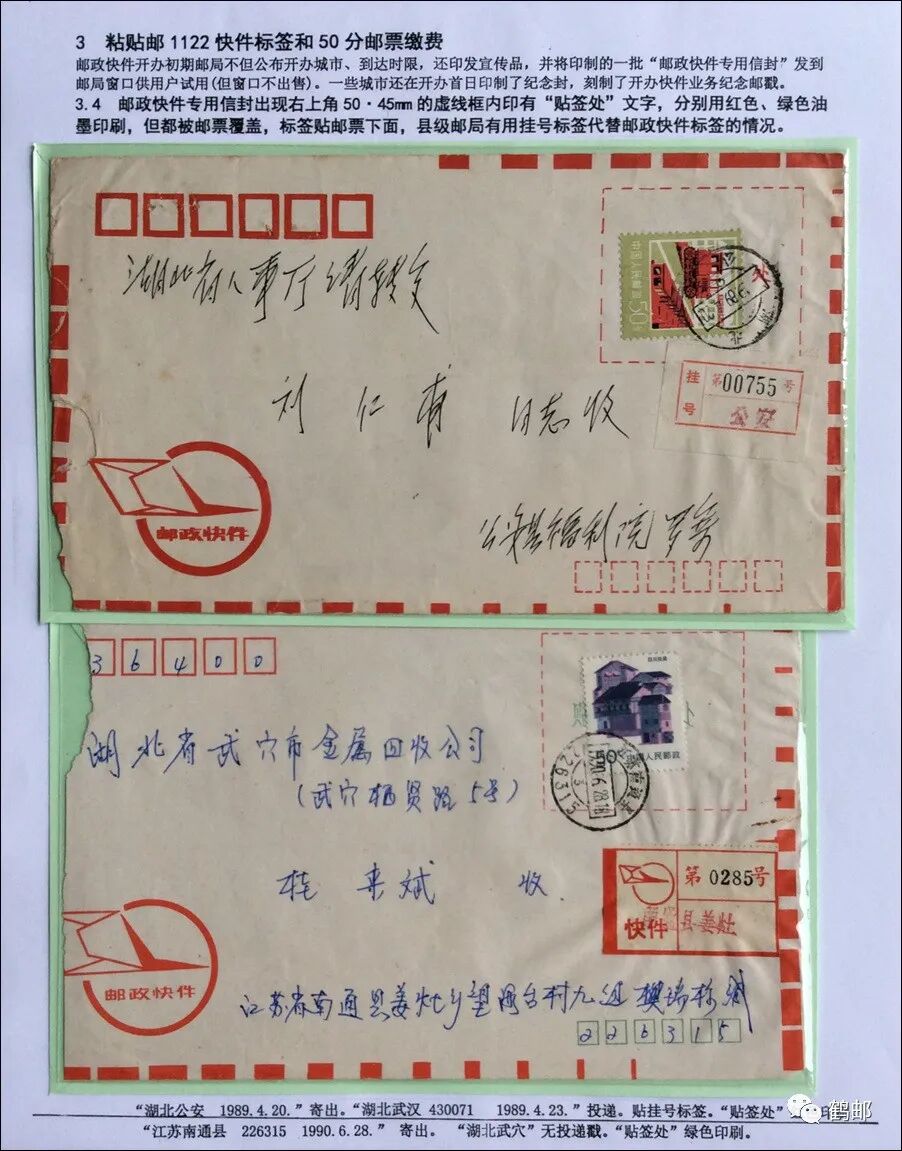 3 粘贴邮1122快件标签和50分邮票缴费
邮政快件开办初期邮局不但公布开办城市、到达时限，还印发宣传品，并将印制的一批“邮政快件专用信封”发到
邮局窗口供用户试用(但窗口不出售)。一些城市还在开办首日印制了纪念封，刻制了开办快件业务纪念邮戳。
3.4 邮政快件专用信封出现右上角50·45mm的虚线框内印有“贴签处”文字，分别用红色、绿色油
墨印刷，但都被邮票覆盖，标签贴邮票下面，县级邮局有用挂号标签代替邮政快件标签的情况。
中国人民邮政
50分
处
湖北
湖北省人事厅请转交
挂号
第00755号
公安
刘仁 同志收
邮政快件
公安县福利院
36400
湖北省武穴市金属回收公司
（武穴栖贤路5号）
50
中国人民邮政
1990.6.28.18
226315
桂来斌 收
第0285号
快件
县姜灶
邮政快件
江苏省南通县姜灶乡望海台村九组樊瑞 
226315
“湖北公安 1989.4.20.”寄出。“湖北武汉 430071 1989.4.23.”投递。贴挂号标签。“贴签处”
“江苏南通县 226315 1990.6.28.” 寄出。 “湖北武穴”无投递戳。“贴签处”绿色印刷。
鹤邮